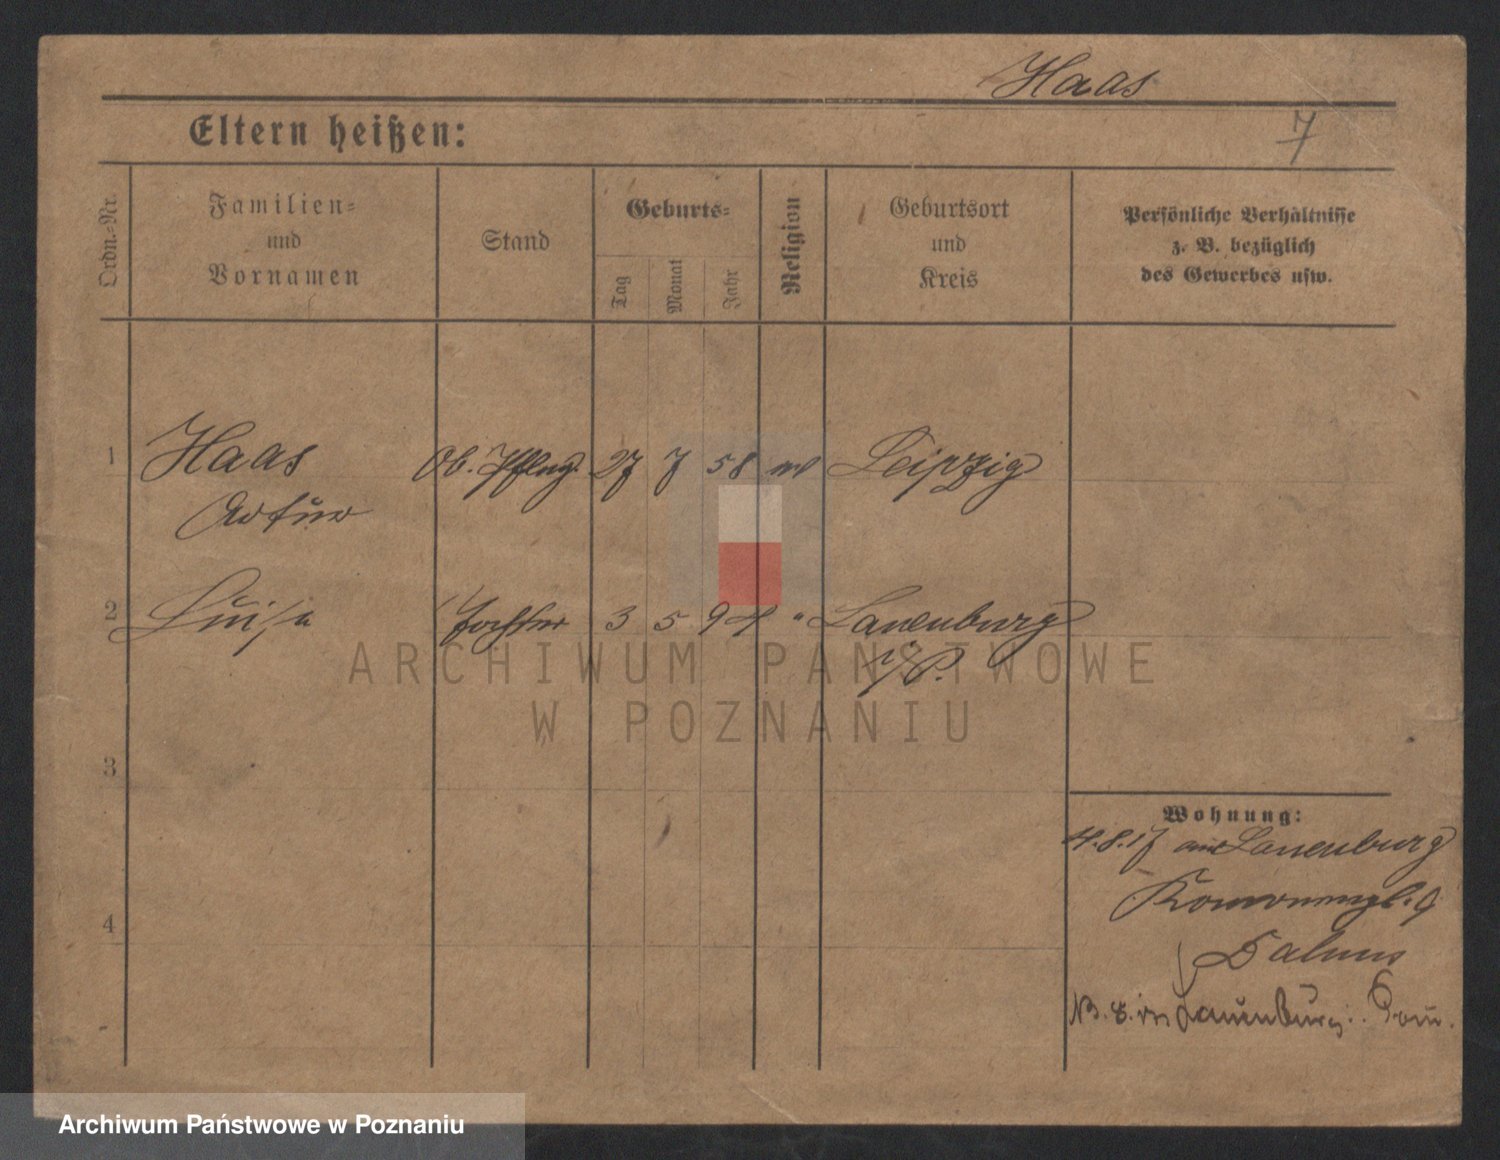 Haas
Eltern heißen:
7
Ordn.-Nr.
Familien-
und
Vornamen
Stand
Geburts-
Tag
Monat
Jahr
Religion
Geburtsort
und
Kreis
Persönliche Verhältnisse
z. B. bezüglich
des Gewerbes usw.
1 Haas Ob. 27 7 58 Leipzig
Artur
2 Luise Tochter 3 5 94 " Lauenburg
i/P.
3
4
Wohnung:
4.8.17 aus Lauenburg
9
in Lauenburg i. Pom.
ARCHIWUM PAŃSTWOWE
W POZNANIU
Archiwum Państwowe w Poznaniu